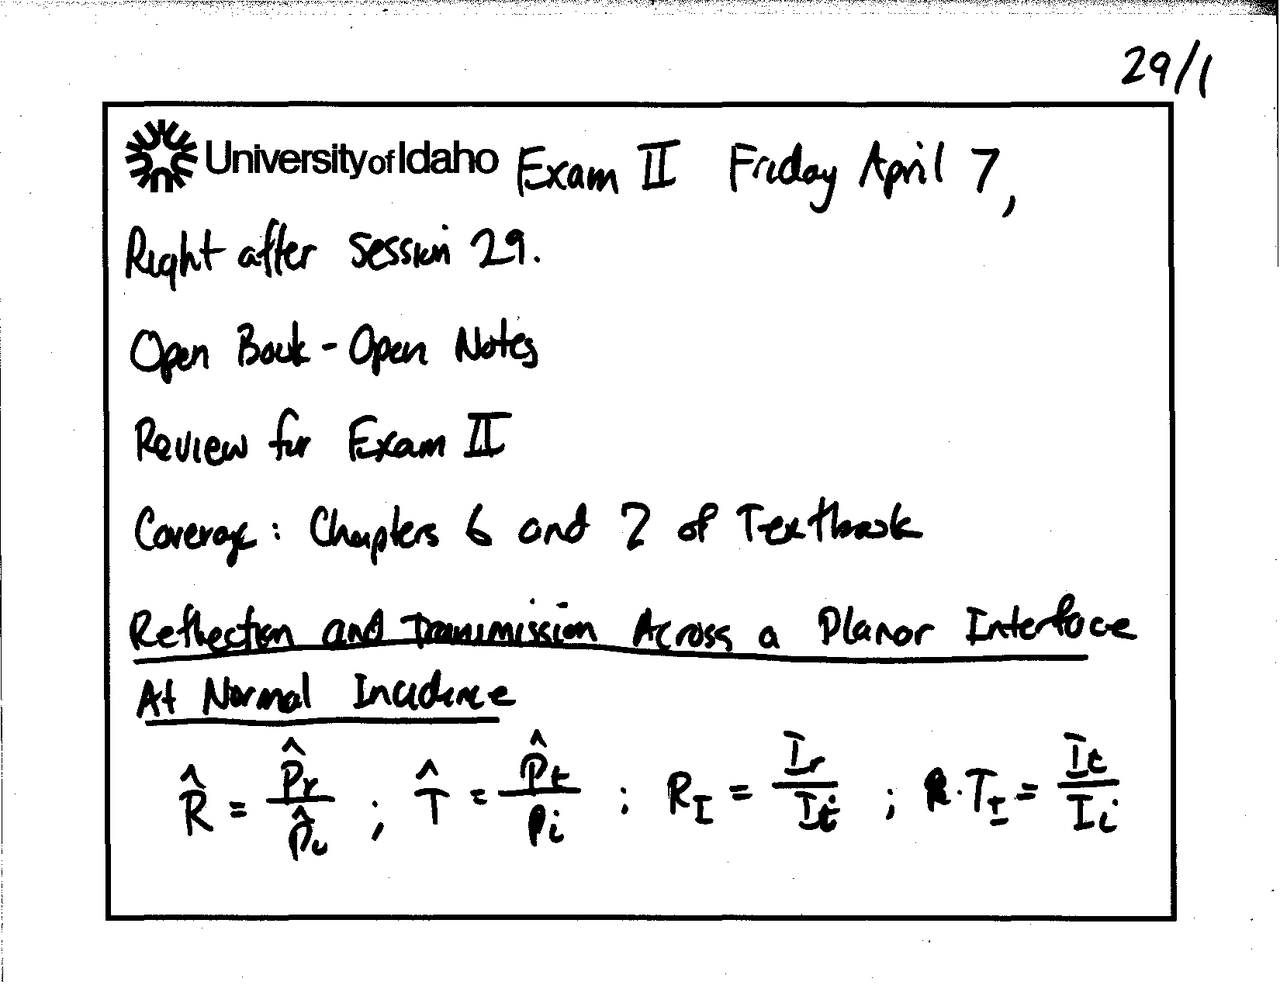 29/1
University of Idaho Exam II Friday April 7,
Right after Session 29.
Open Book - Open Notes
Review for Exam II
Coverage: Chapters 6 and 7 of Textbook
Reflection and Transmission Across a Planar Interface
At Normal Incidence
R̂ = p̂r / p̂i ; T̂ = p̂t / pi ; R_I = Ir / Ii ; T_I = It / Ii